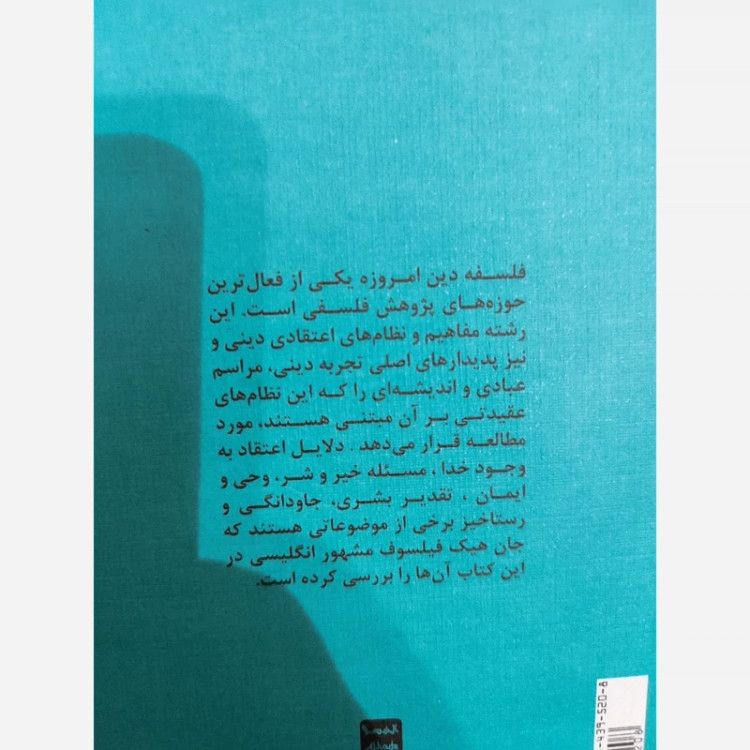 فلسفه دین امروزه یکی از فعال‌ترین
حوزه‌های پژوهش فلسفی است. این
رشته مفاهیم و نظام‌های اعتقادی دینی و
نیز پدیدارهای اصلی تجربه دینی، مراسم
عبادی و اندیشه‌ای را که این نظام‌های
عقیدتی بر آن مبتنی هستند، مورد
مطالعه قرار می‌دهد. دلایل اعتقاد به
وجود خدا، مسئله خیر و شر، وحی و
ایمان، تقدیر بشری، جاودانگی و
رستاخیز برخی از موضوعاتی هستند که
جان هیک فیلسوف مشهور انگلیسی در
این کتاب آن‌ها را بررسی کرده است.
439-520-8